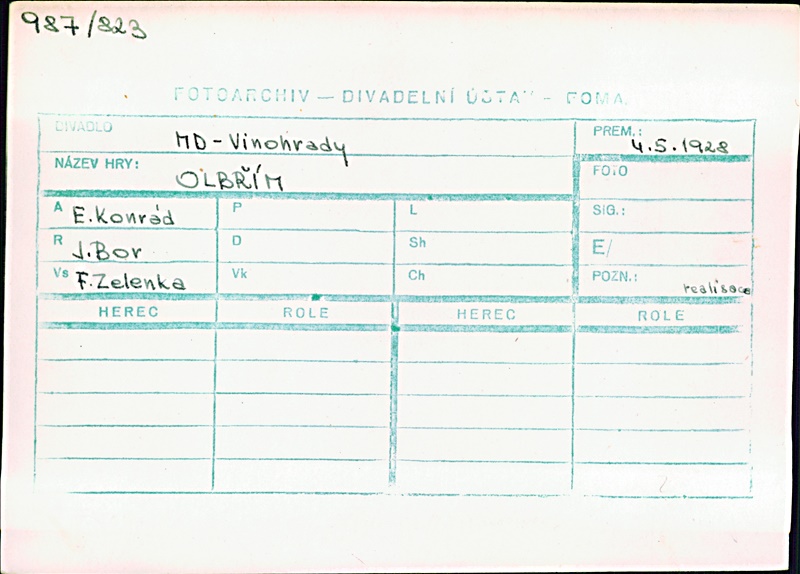 987/823
FOTOARCHIV — DIVADELNÍ ÚSTAV - FOMA
DIVADLO MD-Vinohrady PREM.: 4.5.1928
NÁZEV HRY: OLBŘÍM FOTO
A E.Konrád P L SIG.:
R J.Bor D Sh E/
Vs F.Zelenka Vk Ch POZN.: realisace
HEREC ROLE HEREC ROLE